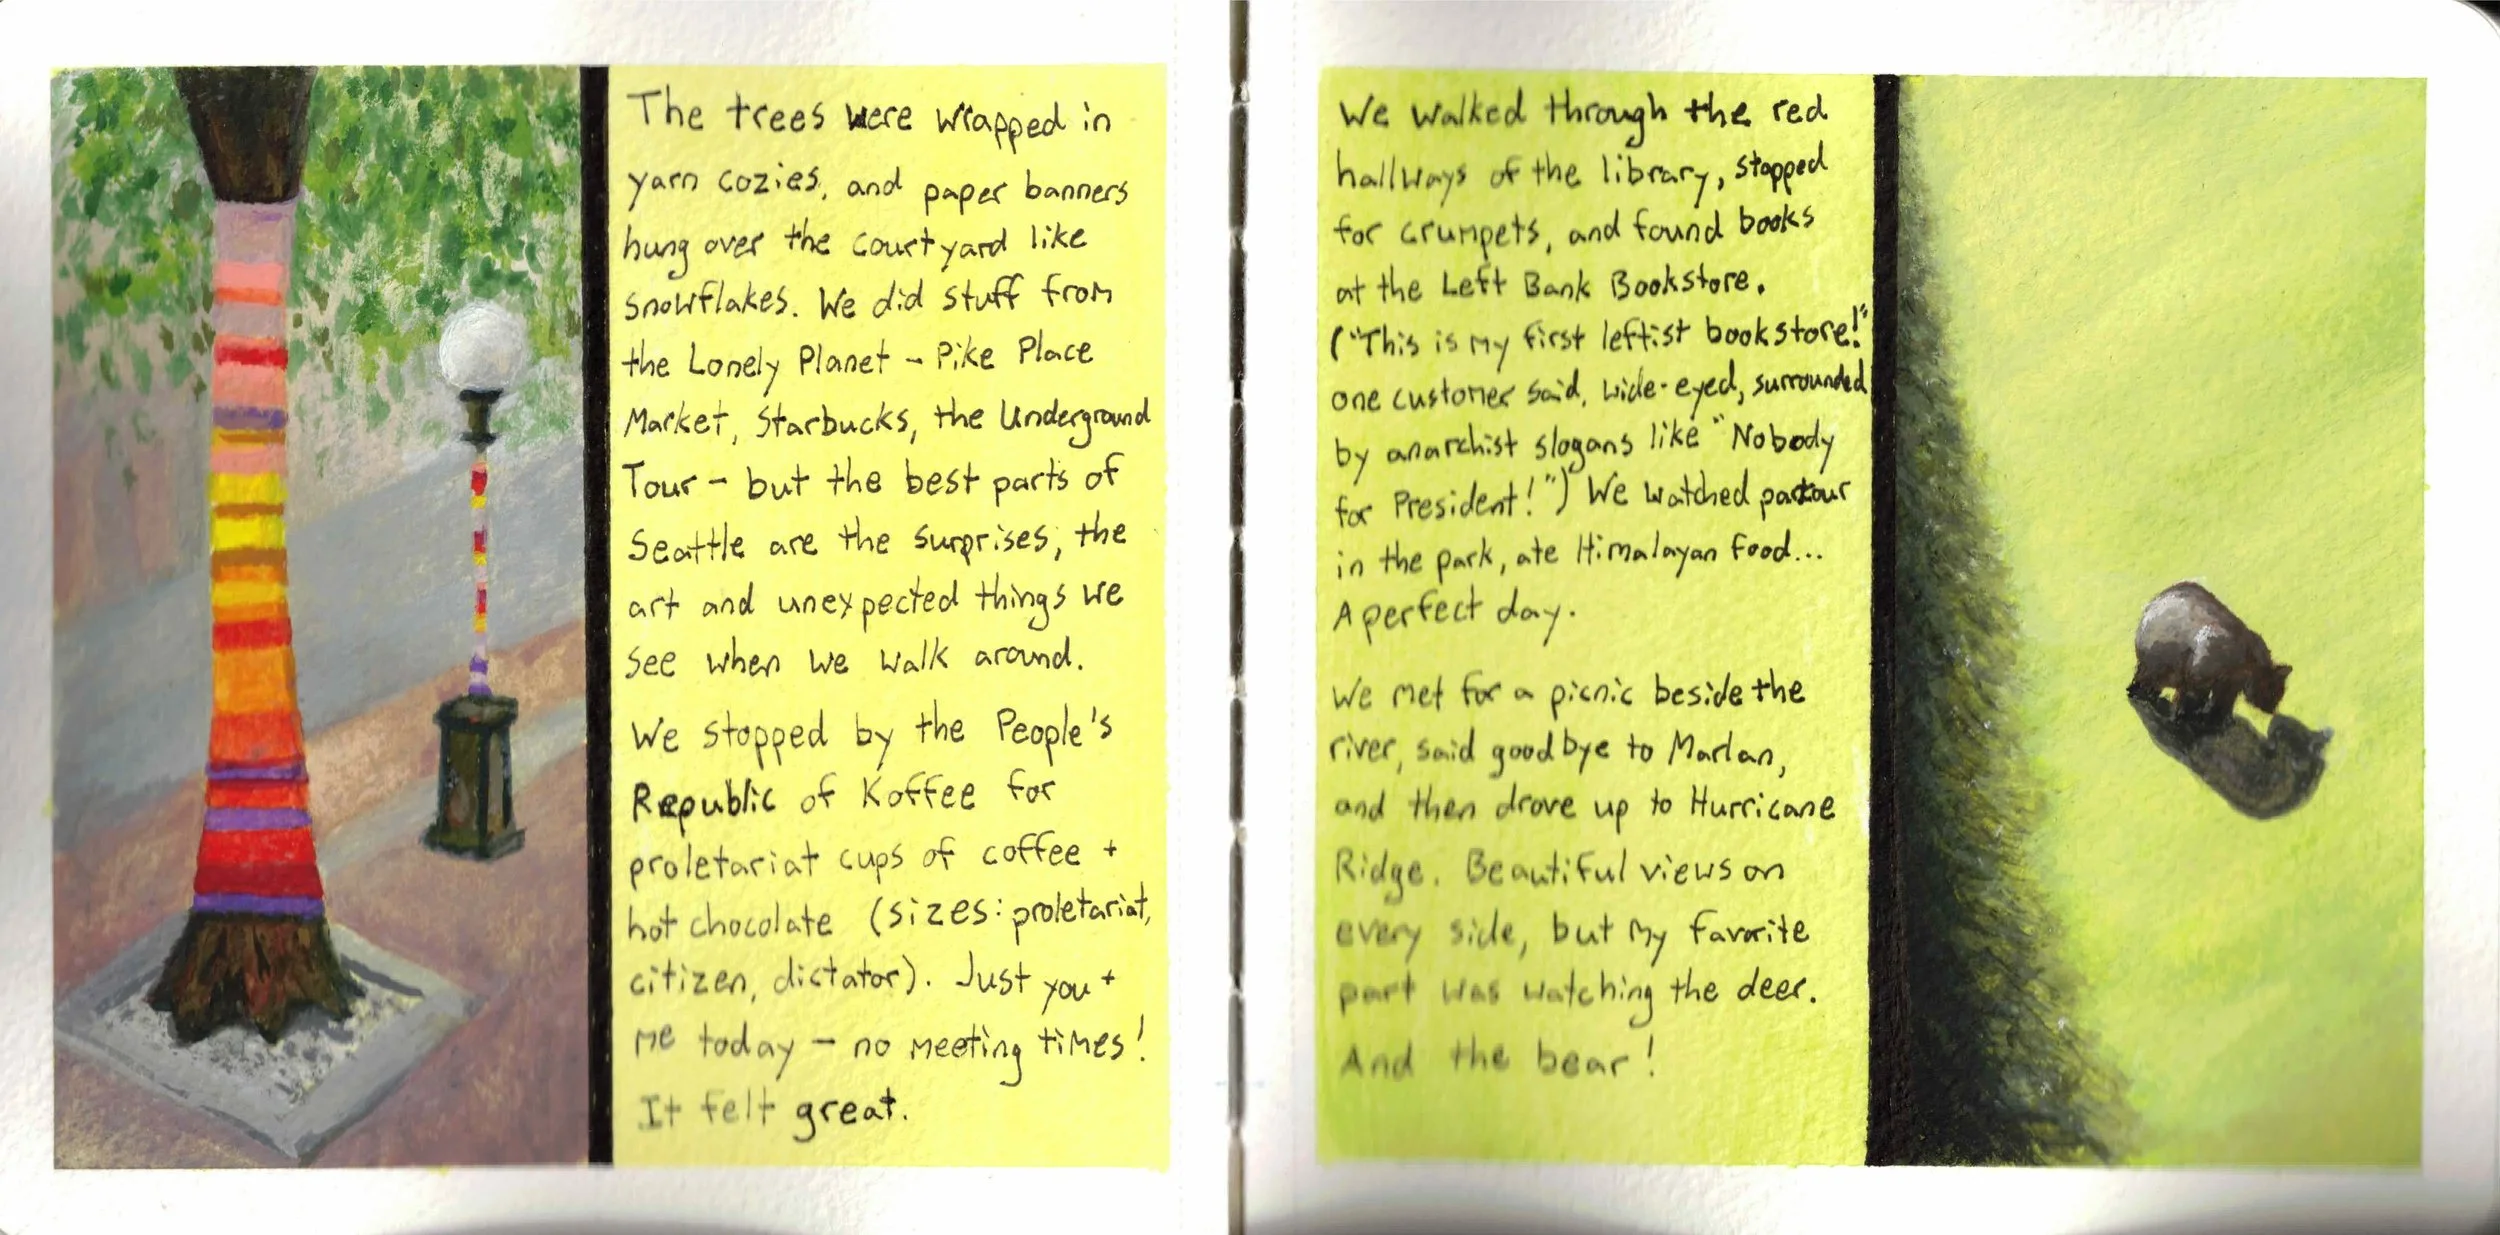 The trees were wrapped in
yarn cozies, and paper banners
hung over the courtyard like
snowflakes. We did stuff from
the Lonely Planet – Pike Place
Market, Starbucks, the Underground
Tour – but the best parts of
Seattle are the surprises, the
art and unexpected things we
see when we walk around.
We stopped by the People's
Republic of Koffee for
proletariat cups of coffee +
hot chocolate (sizes: proletariat,
citizen, dictator). Just you +
me today – no meeting times!
It felt great.
We walked through the red
hallways of the library, stopped
for crumpets, and found books
at the Left Bank Bookstore.
("This is my first leftist bookstore!"
one customer said, wide-eyed, surrounded
by anarchist slogans like "Nobody
for President!") We watched parkour
in the park, ate Himalayan food...
A perfect day.
We met for a picnic beside the
river, said goodbye to Marlan,
and then drove up to Hurricane
Ridge. Beautiful views on
every side, but my favorite
part was watching the deer.
And the bear!